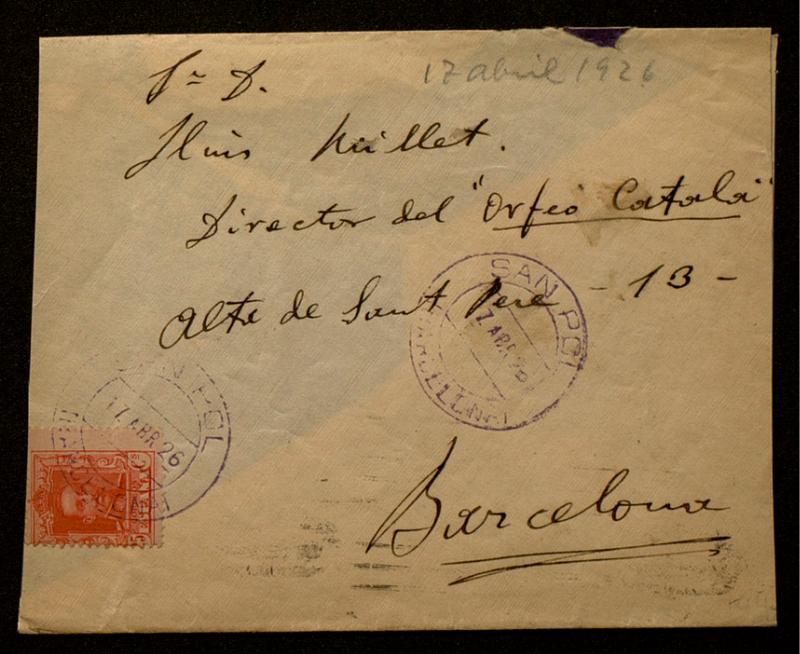 17 abril 1926
Sr D.
Lluis Millet.
Director del "Orfeó Català"
Alta de Sant Pere - 13 -
SAN POL
17 ABR 26
BARCELONA
SAN POL
17 ABR 26
BARCELONA
Barcelona